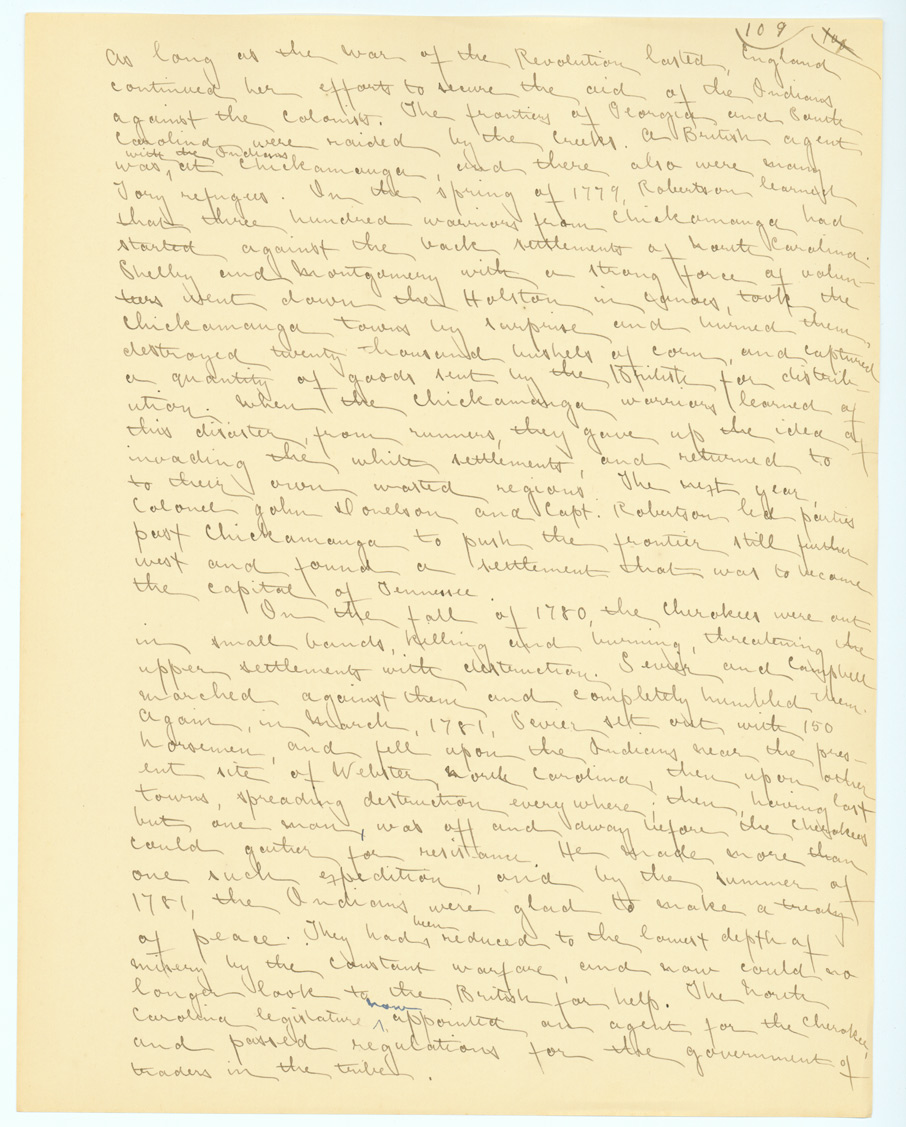 109
As long as the war of the Revolution lasted, England
continued her efforts to secure the aid of the Indians
against the colonists. The frontiers of Georgia and South
Carolina were raided by the Creeks. A British agent
with the Indians
was, at Chickamanga, and there also were many
Tory refugees. In the spring of 1779, Robertson learned
that three hundred warriors from Chickamanga had
started against the back settlements of North Carolina.
Shelby and Montgomery with a strong force of volun-
teers went down the Holston in canoes, took the
Chickamanga towns by surprise and burned them,
destroyed twenty thousand bushels of corn, and captured
a quantity of goods sent by the British for distrib-
ution. When the Chickamanga warriors learned of
this disaster, from runners, they gave up the idea of
invading the white settlements, and returned to
to their own wasted regions. The next year,
Colonel John Donelson and Capt. Robertson led parties
past Chickamanga to push the frontier still further
west and found a settlement that was to become
the capital of Tennessee.
In the fall of 1780, the Cherokees were out
in small bands, killing and burning, threatening the
upper settlements with destruction. Sevier and Campbell
marched against them and completely humbled them.
Again, in March, 1781, Sevier set out with 150
horsemen, and fell upon the Indians near the pres-
ent site of Webster, North Carolina, then upon other
towns, spreading destruction everywhere; then, having lost
but one man, was off and away before the Cherokees
could gather for resistance. He made more than
one such expedition, and by the summer of
1781, the Indians were glad to make a treaty
of peace. They had been reduced to the lowest depth of
misery by the constant warfare, and now could no
longer look to the British for help. The North
Carolina legislature now appointed an agent for the Cherokees,
and passed regulations for the government of
traders in the tribe.